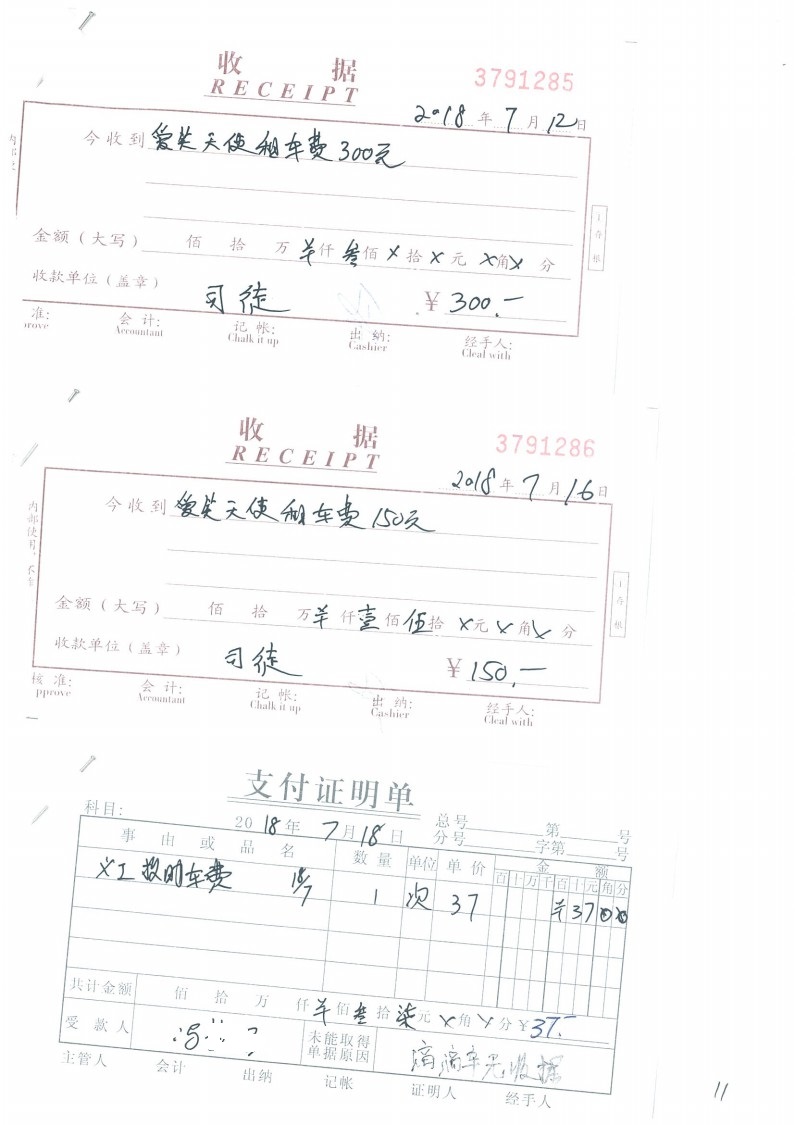 收 据
RECEIPT
3791285
2018 年 7 月 12 日
今收到 爱笑天使租车费300元
金额（大写） 佰 拾 万 羊 仟 叁 佰 X 拾 X 元 X 角 X 分
收款单位（盖章） 司徒 ￥300.—
准: 会 计: 记 帐: 出 纳: 经手人:
prove Accountant Chalk it up Cashier Cleal with
收 据
RECEIPT
3791286
2018 年 7 月 16 日
今收到 爱笑天使租车费150元
金额（大写） 佰 拾 万 羊 仟 壹 佰 伍 拾 X 元 X 角 X 分
收款单位（盖章） 司徒 ￥150.—
核 准: 会 计: 记 帐: 出 纳: 经手人:
pprove Accountant Chalk it up Cashier Cleal with
支付证明单
科目: 2018 年 7 月 18 日 总号 第 号
分号 字第 号
事 由 或 品 名 数 量 单位 单 价 金 额
百 十 万 千 百 十 元 角 分
义工 车费 1 次 37 37 0 0
共计金额 佰 拾 万 仟 羊 佰 叁 拾 柒 元 X 角 X 分 ￥37.—
受 款 人 未能取得单据原因 滴滴车无收据
主管人 会计 出纳 记帐 证明人 经手人
11